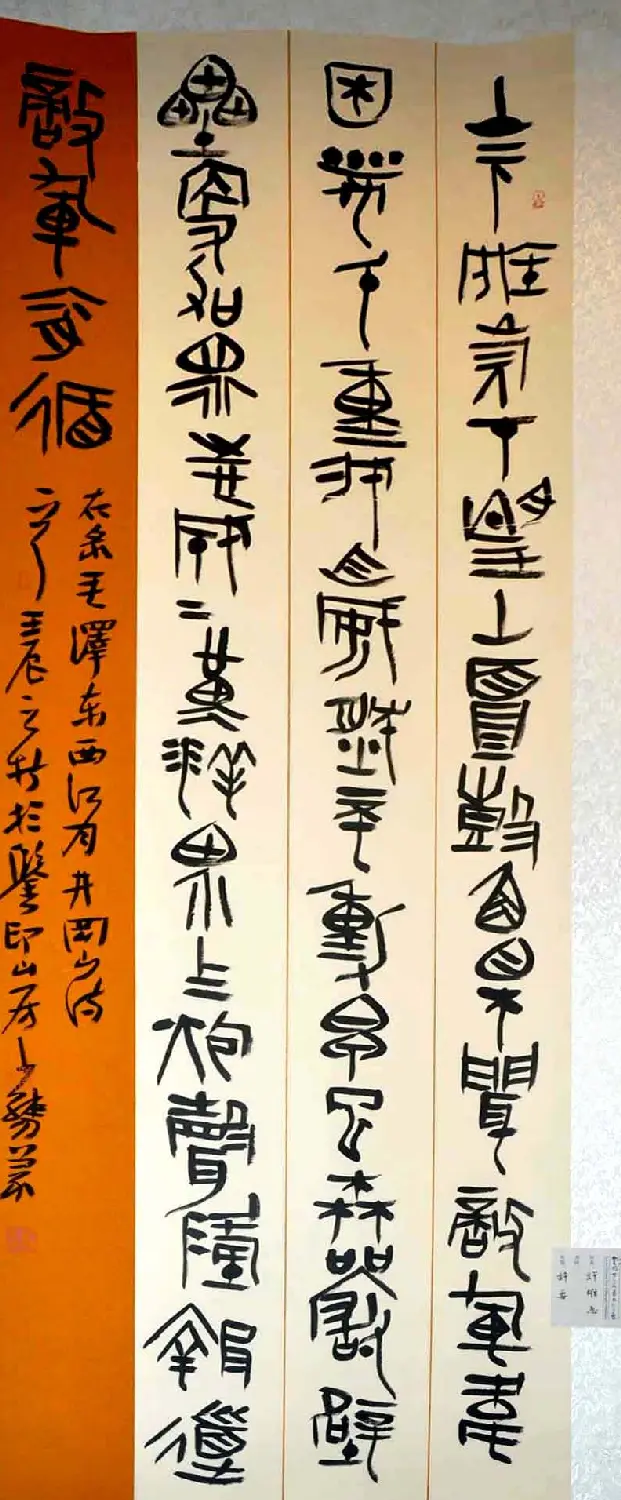 山下旌旗在望山頭鼓角相聞敵軍圍
困萬千重我自巋然不動早已森嚴壁
壘更加眾志成城黃洋界上炮聲隆報道
敵軍宵遁
右录毛澤东西江月井岡山诗
一首壬辰之秋於鑒印山房